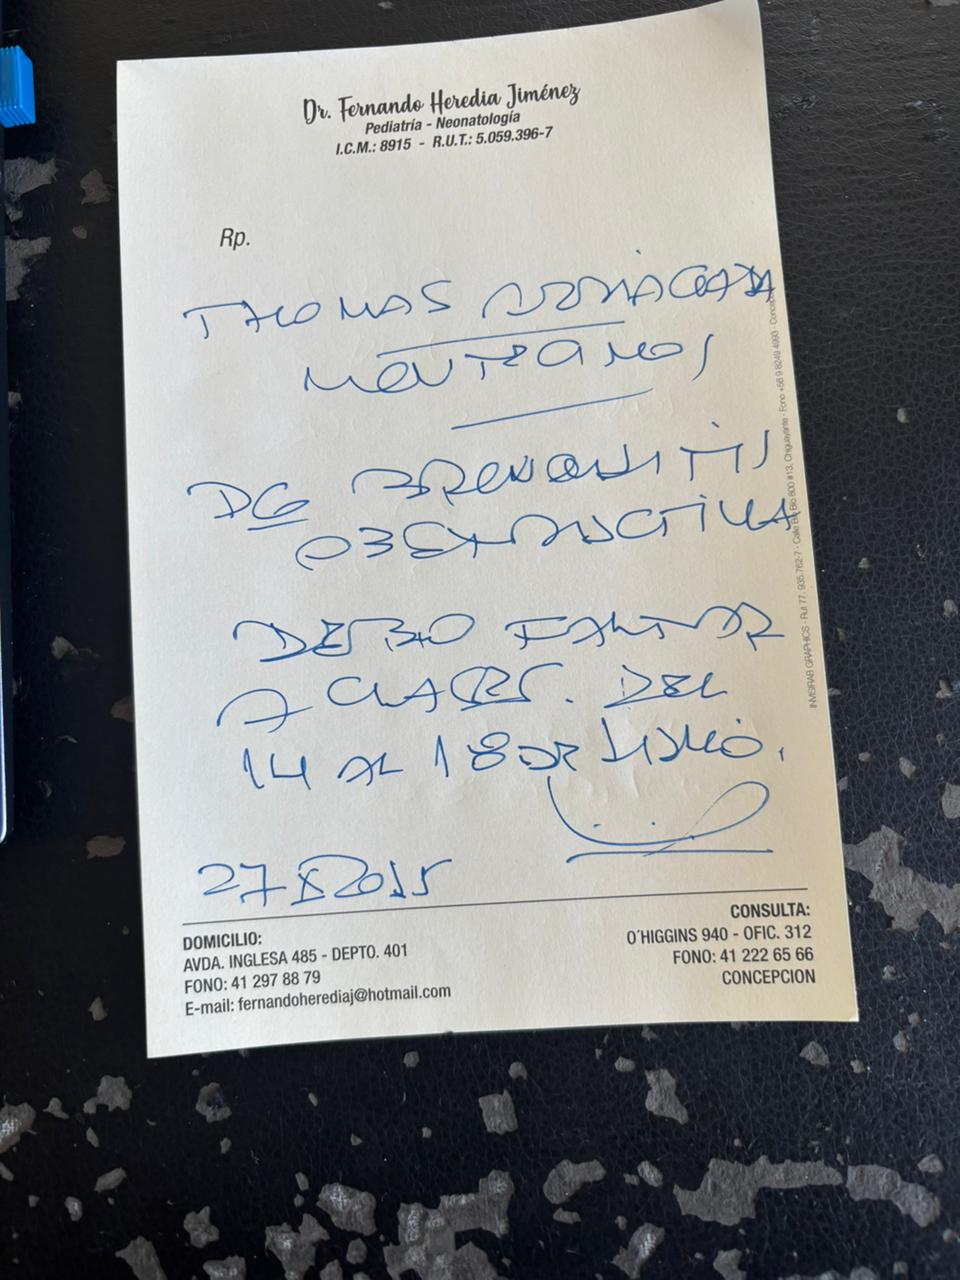 Dr. Fernando Heredia Jiménez
Pediatría - Neonatología
I.C.M.: 8915 - R.U.T.: 5.059.396-7
Rp.
THOMAS ARRIAGADA
DG BRONQUITIS
OBSTRUCTIVA
DEBIO FALTAR
A CLASES. DEL
14 AL 18 DE JUNIO.
27
DOMICILIO:
AVDA. INGLESA 485 - DEPTO. 401
FONO: 41 297 88 79
E-mail: fernandoherediaj@hotmail.com
CONSULTA:
O´HIGGINS 940 - OFIC. 312
FONO: 41 222 65 66
CONCEPCION
INVISIRAB GRAPHICS - Rut 77. 935.762-7 - Calle Bio Bio 800 #13, Chiguayante - Fono +56 9 8249 4993